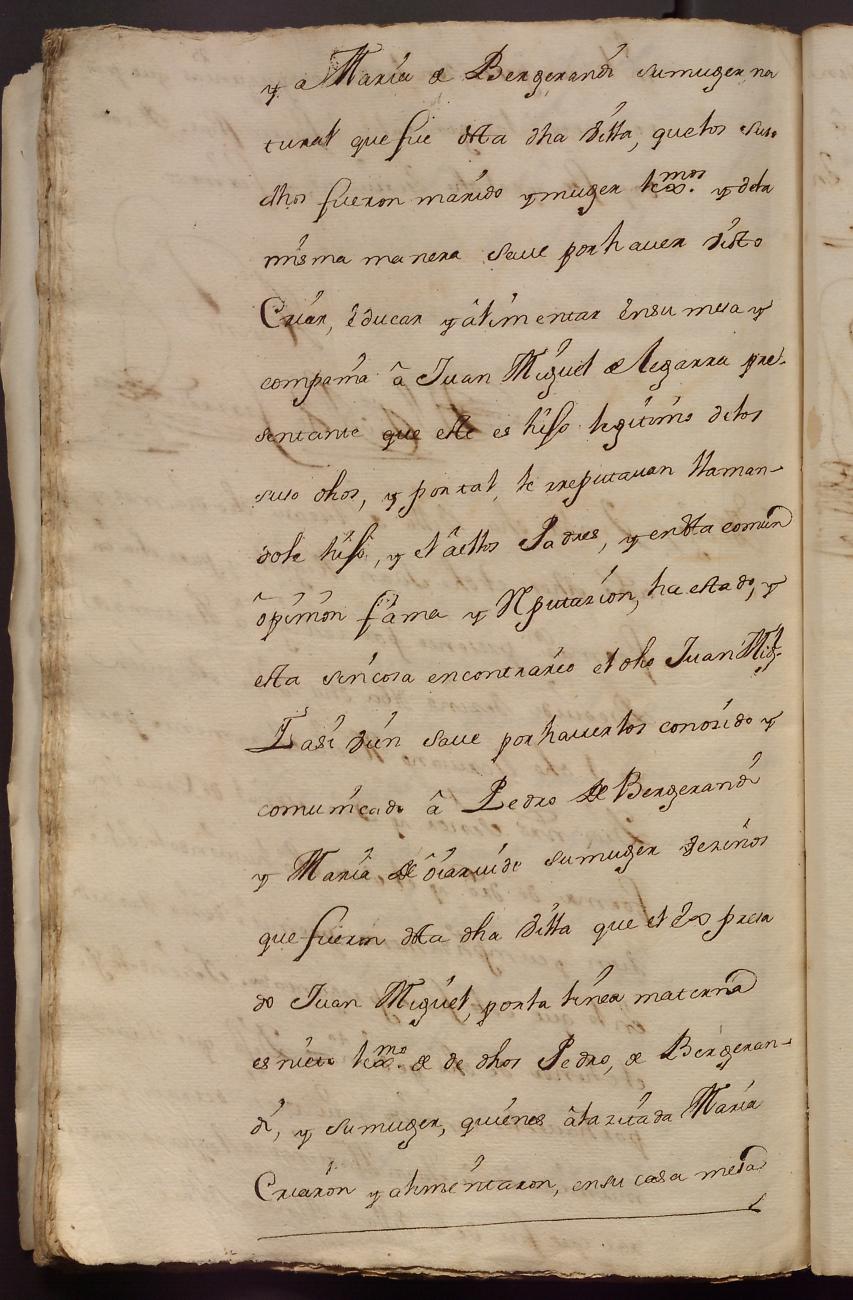 y a María de Bergerandi sumuger na
tural que fue dela dha Villa, quelos suso
dhos fueron marido ymuger legmos. y dela
misma manera save porhaver visto
Criar, êducar yâlimentar ensu mesa y
compañia â Juan Miguel de Legarra pre-
sentante que este es hiso legitimo delos
suso dhos, y portal, le rreputavan llaman-
dole hiso, y el âellos Padres, y enlla comun
ôpinion fama y Reputazion, ha estado, y
esta sincosa encontrario el dho Juan Migl.
Yasi vien save porhaverlos conozido y
comunicado â Pedro de Bergerandi
y Maria de sumuger vezinos
que fueron dela dha Villa que el êxpresa
do Juan Miguel, porla linea materna
es nieto legmo. de de dhos Pedro, de Bergeran-
di, y sumuger, quienes âlazitada Maria
Criaron yalimentaron, ensu casa mesa